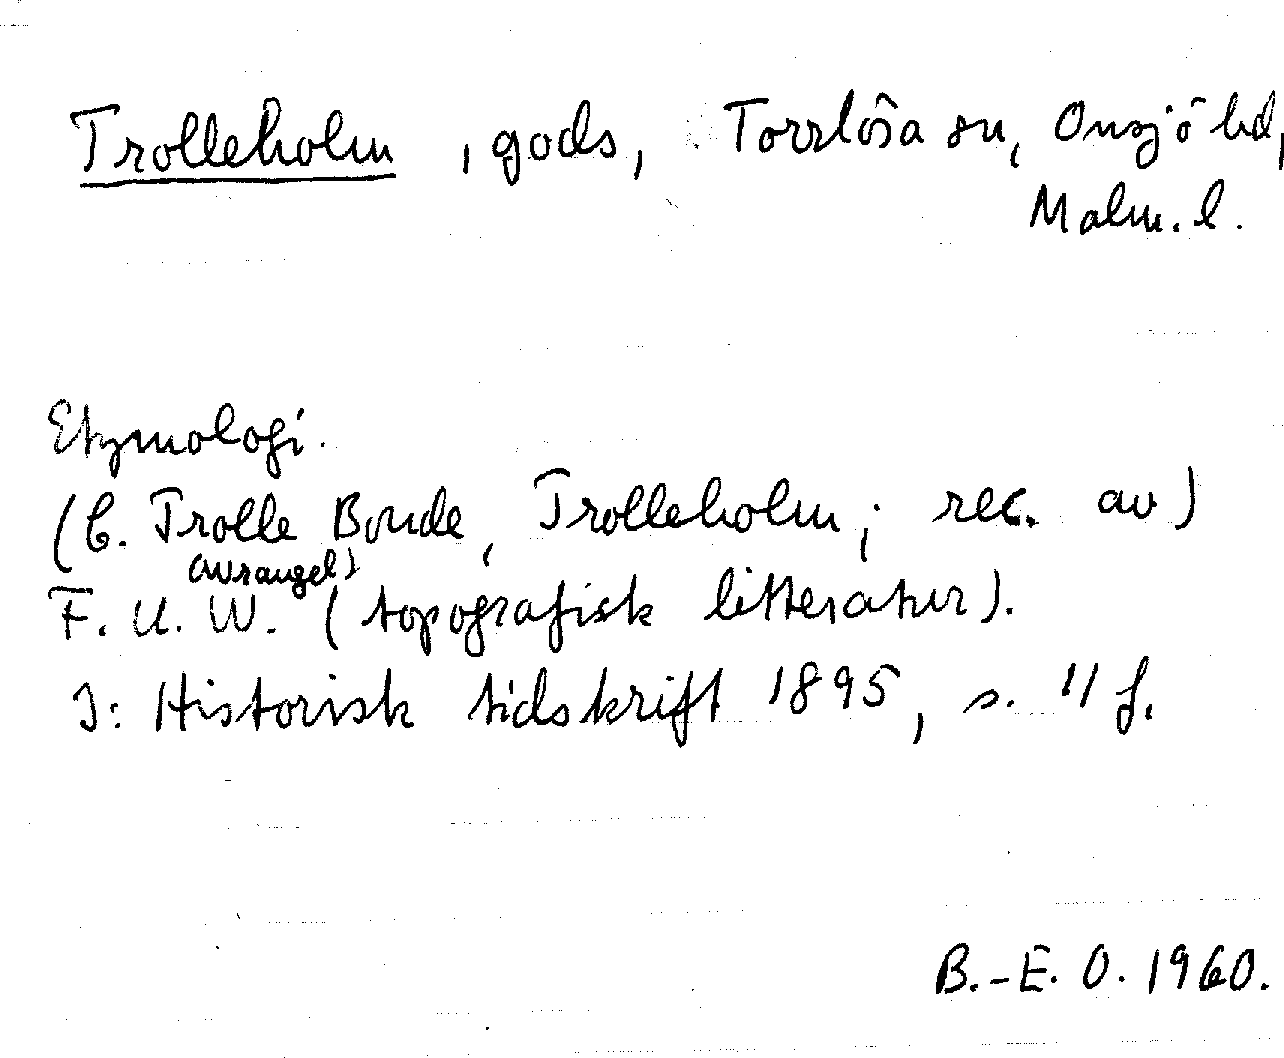 Trolleholm, gods, Torrlösa sn, Onsjö hd,
Malm. l.
Etymologi.
(C. Trolle Bonde, Trolleholm; rec. av)
(Wrangel)
F. U. W. (topografisk litteratur).
I: Historisk tidskrift 1895, s. 11 f.
B.-E. O. 1960.